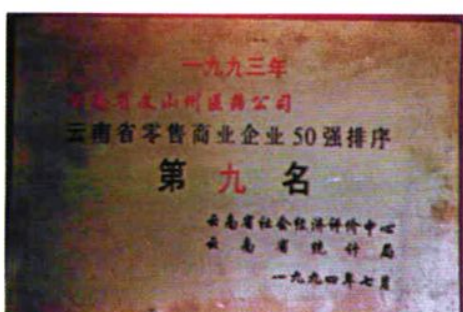 一九九三年
云南省文山州医药公司
云南省零售商业企业50强排序
第九名
云南省社会经济评价中心
云南省统计局
一九九四年七月